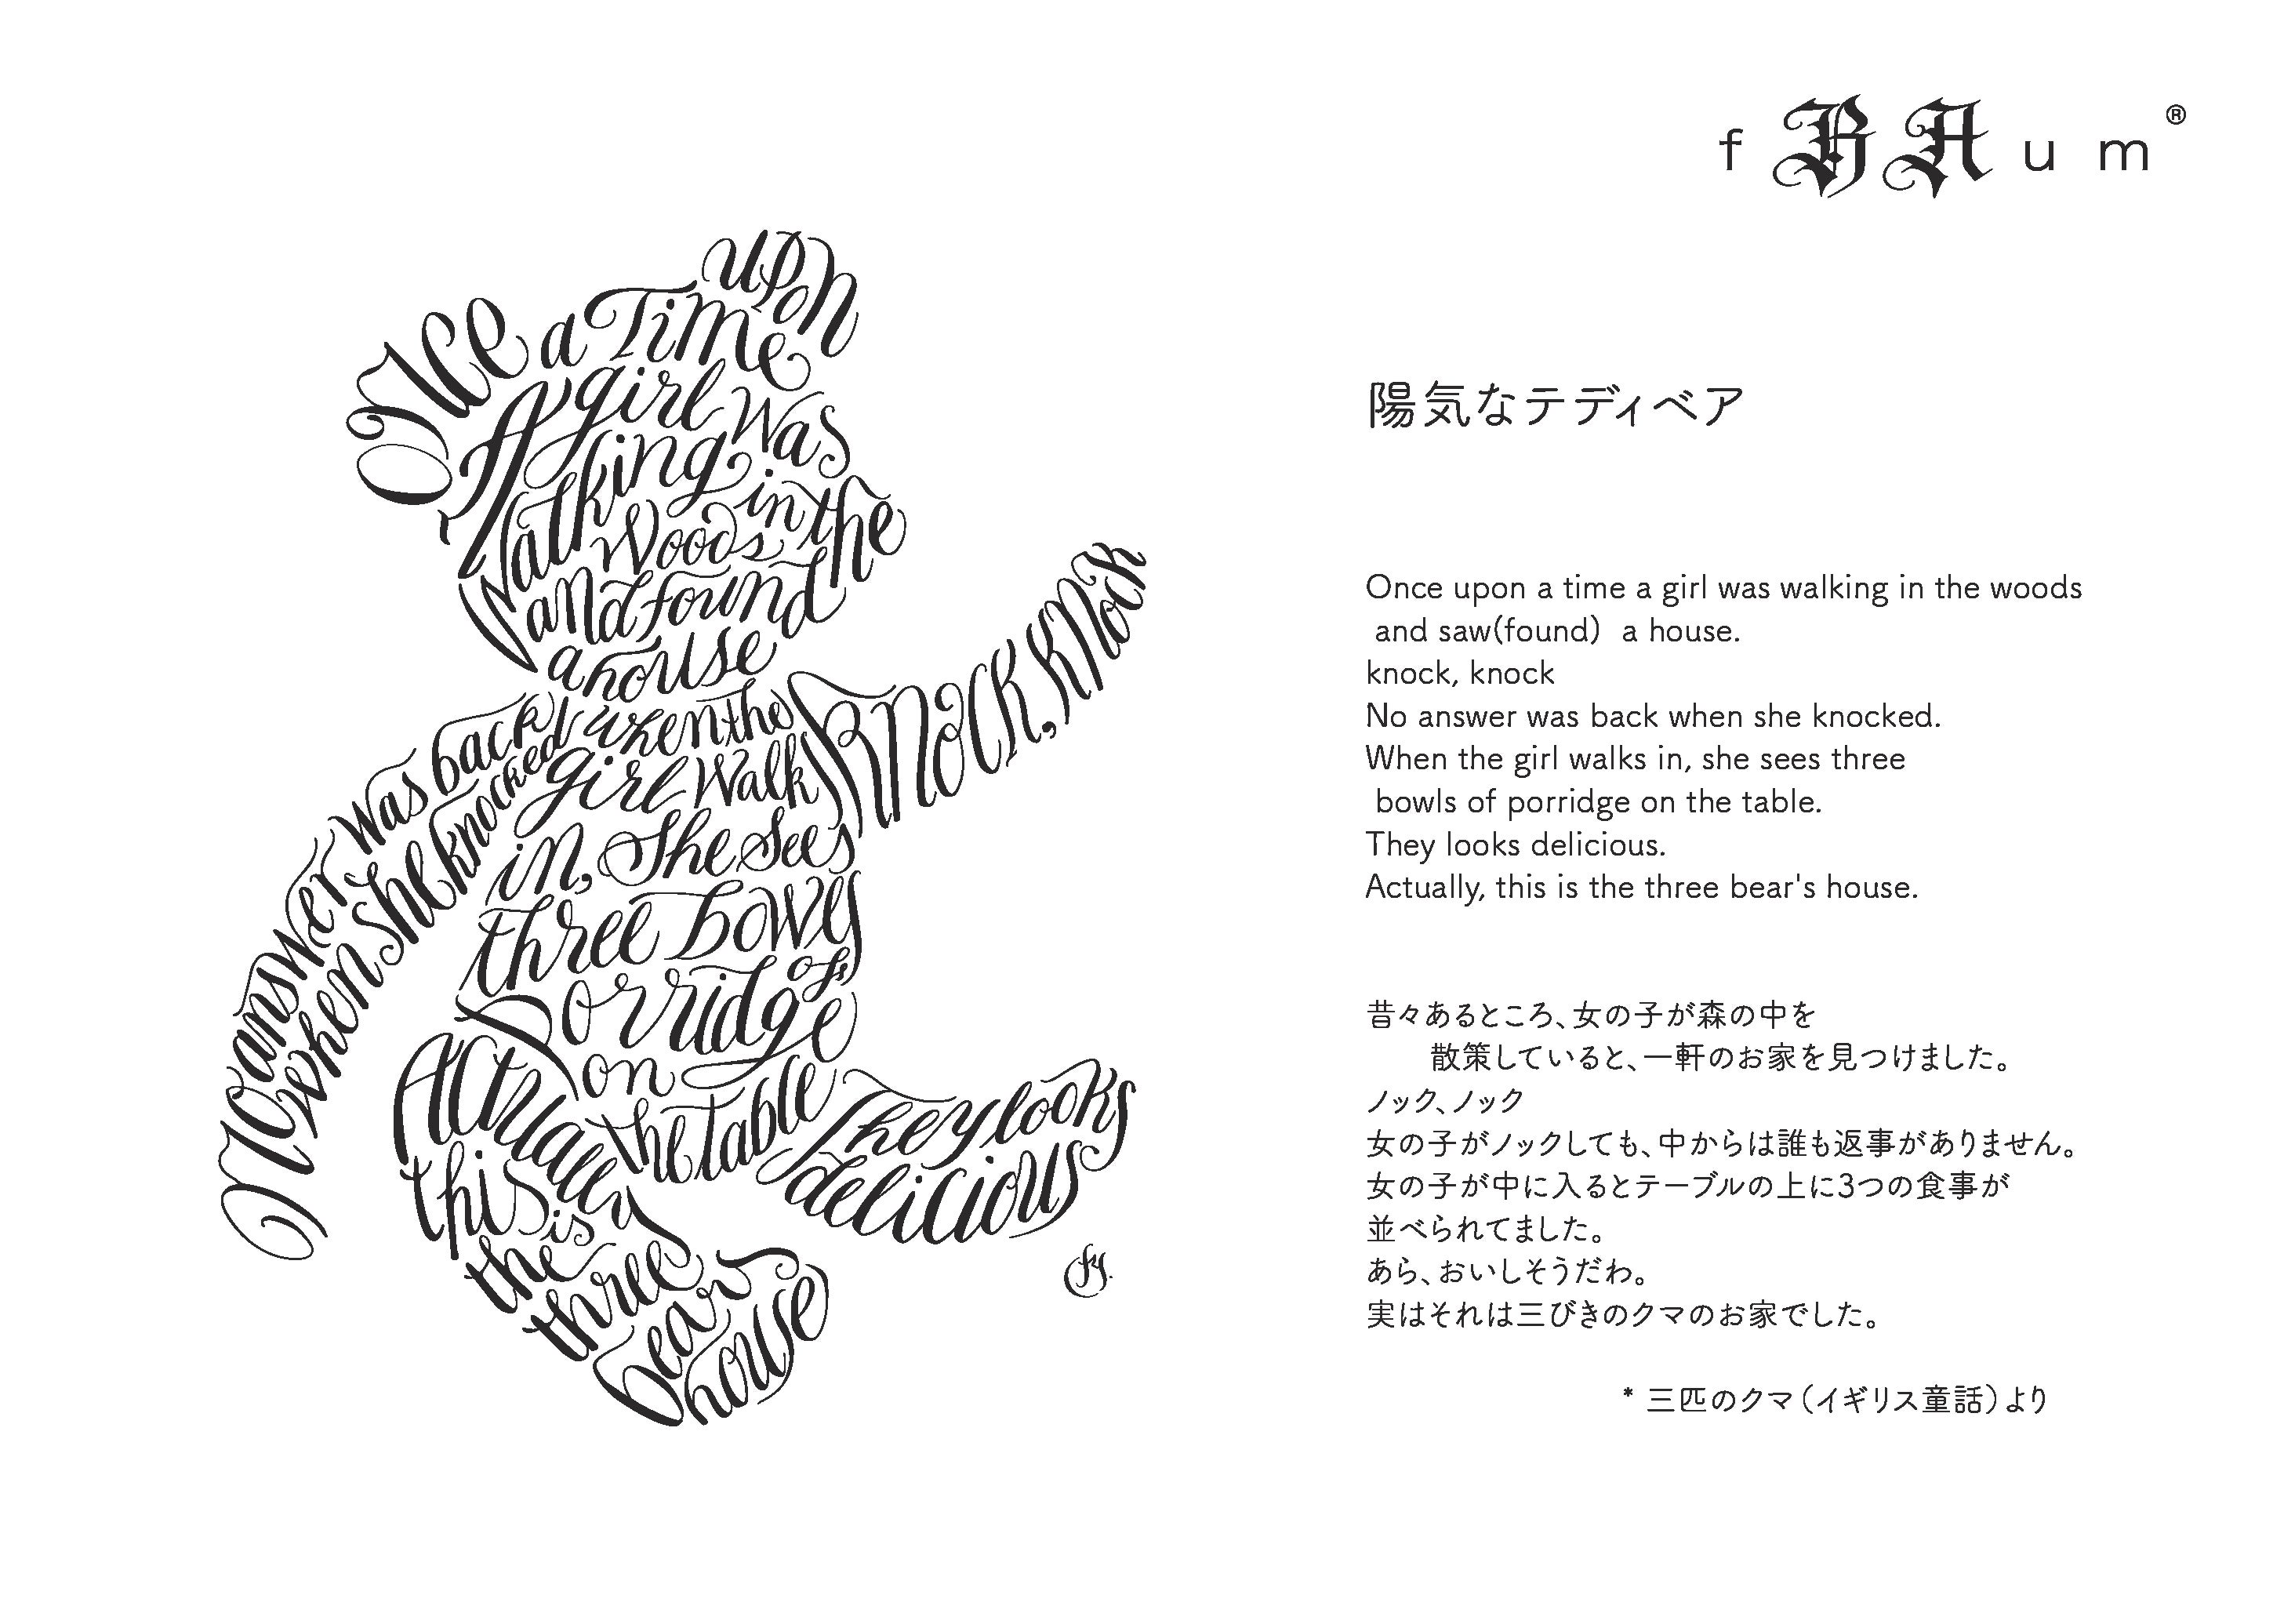 Once upon
a Time
A girl was
Walking in the
Woods
and found
a house
Knock, Knock
No answer was back
when she knocked
when the
girl Walk
in, She Sees
three bowls
of
Porridge
on
the table
They looks
delicious
Actually
this is
the
three
bears
house
fy.
f BA u m ®
陽気なテディベア
Once upon a time a girl was walking in the woods
and saw(found) a house.
knock, knock
No answer was back when she knocked.
When the girl walks in, she sees three
bowls of porridge on the table.
They looks delicious.
Actually, this is the three bear's house.
昔々あるところ、女の子が森の中を
散策していると、一軒のお家を見つけました。
ノック、ノック
女の子がノックしても、中からは誰も返事がありません。
女の子が中に入るとテーブルの上に3つの食事が
並べられてました。
あら、おいしそうだわ。
実はそれは三びきのクマのお家でした。
* 三匹のクマ（イギリス童話）より